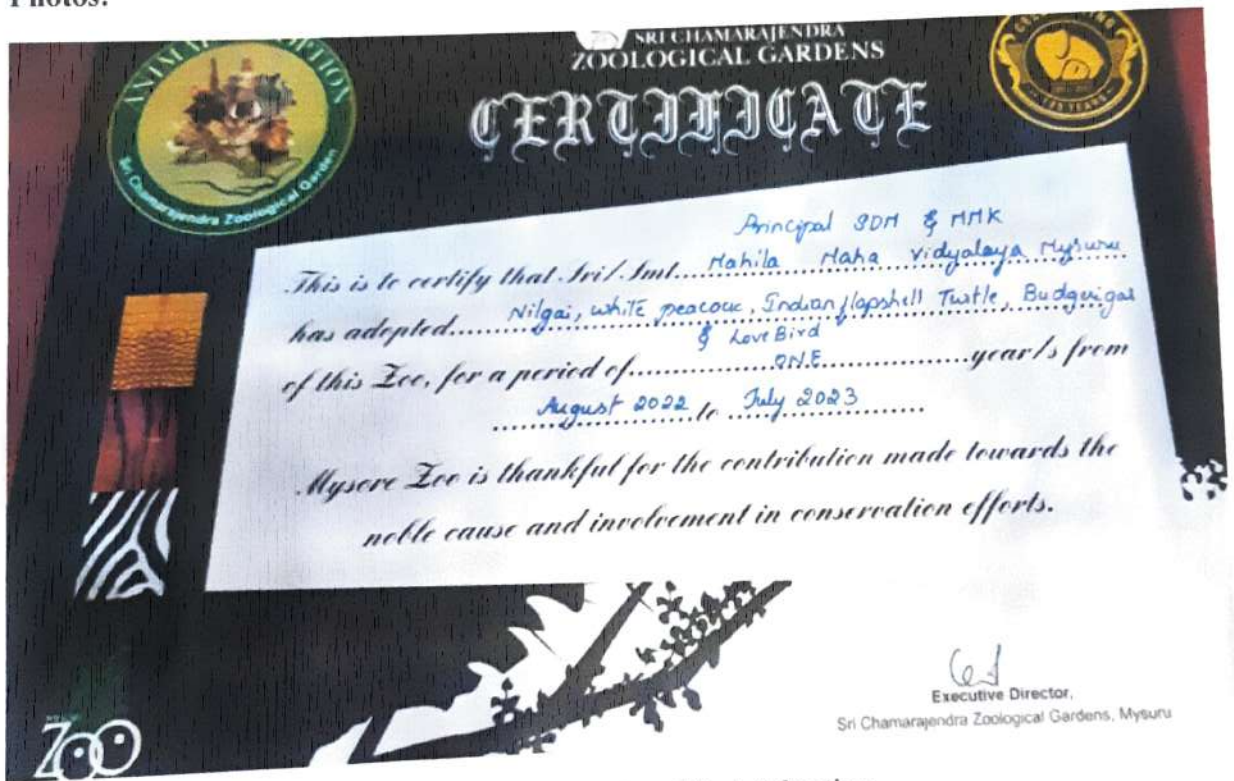 Photos:
ANIMAL ADOPTION
Sri Chamarajendra Zoological Garden
SRI CHAMARAJENDRA
ZOOLOGICAL GARDENS
CERTIFICATE
125 YEARS
Principal SDM & MMK
This is to certify that Sri/Smt... Mahila Maha vidyalaya Mysuru
has adopted... Nilgai, white peacock, Indian flapshell Turtle, Budgerigar
& Love Bird
of this Zoo, for a period of... ONE ...year/s from
August 2022 to July 2023
Mysore Zoo is thankful for the contribution made towards the
noble cause and involvement in conservation efforts.
Executive Director,
Sri Chamarajendra Zoological Gardens, Mysuru
ZOO